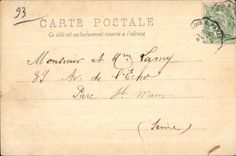 93
CARTE POSTALE
Ce côté est exclusivement réservé à l'adresse
Monsieur et Mme Lamy
33 Av. de l'Echo
Parc St Maur
(Seine)